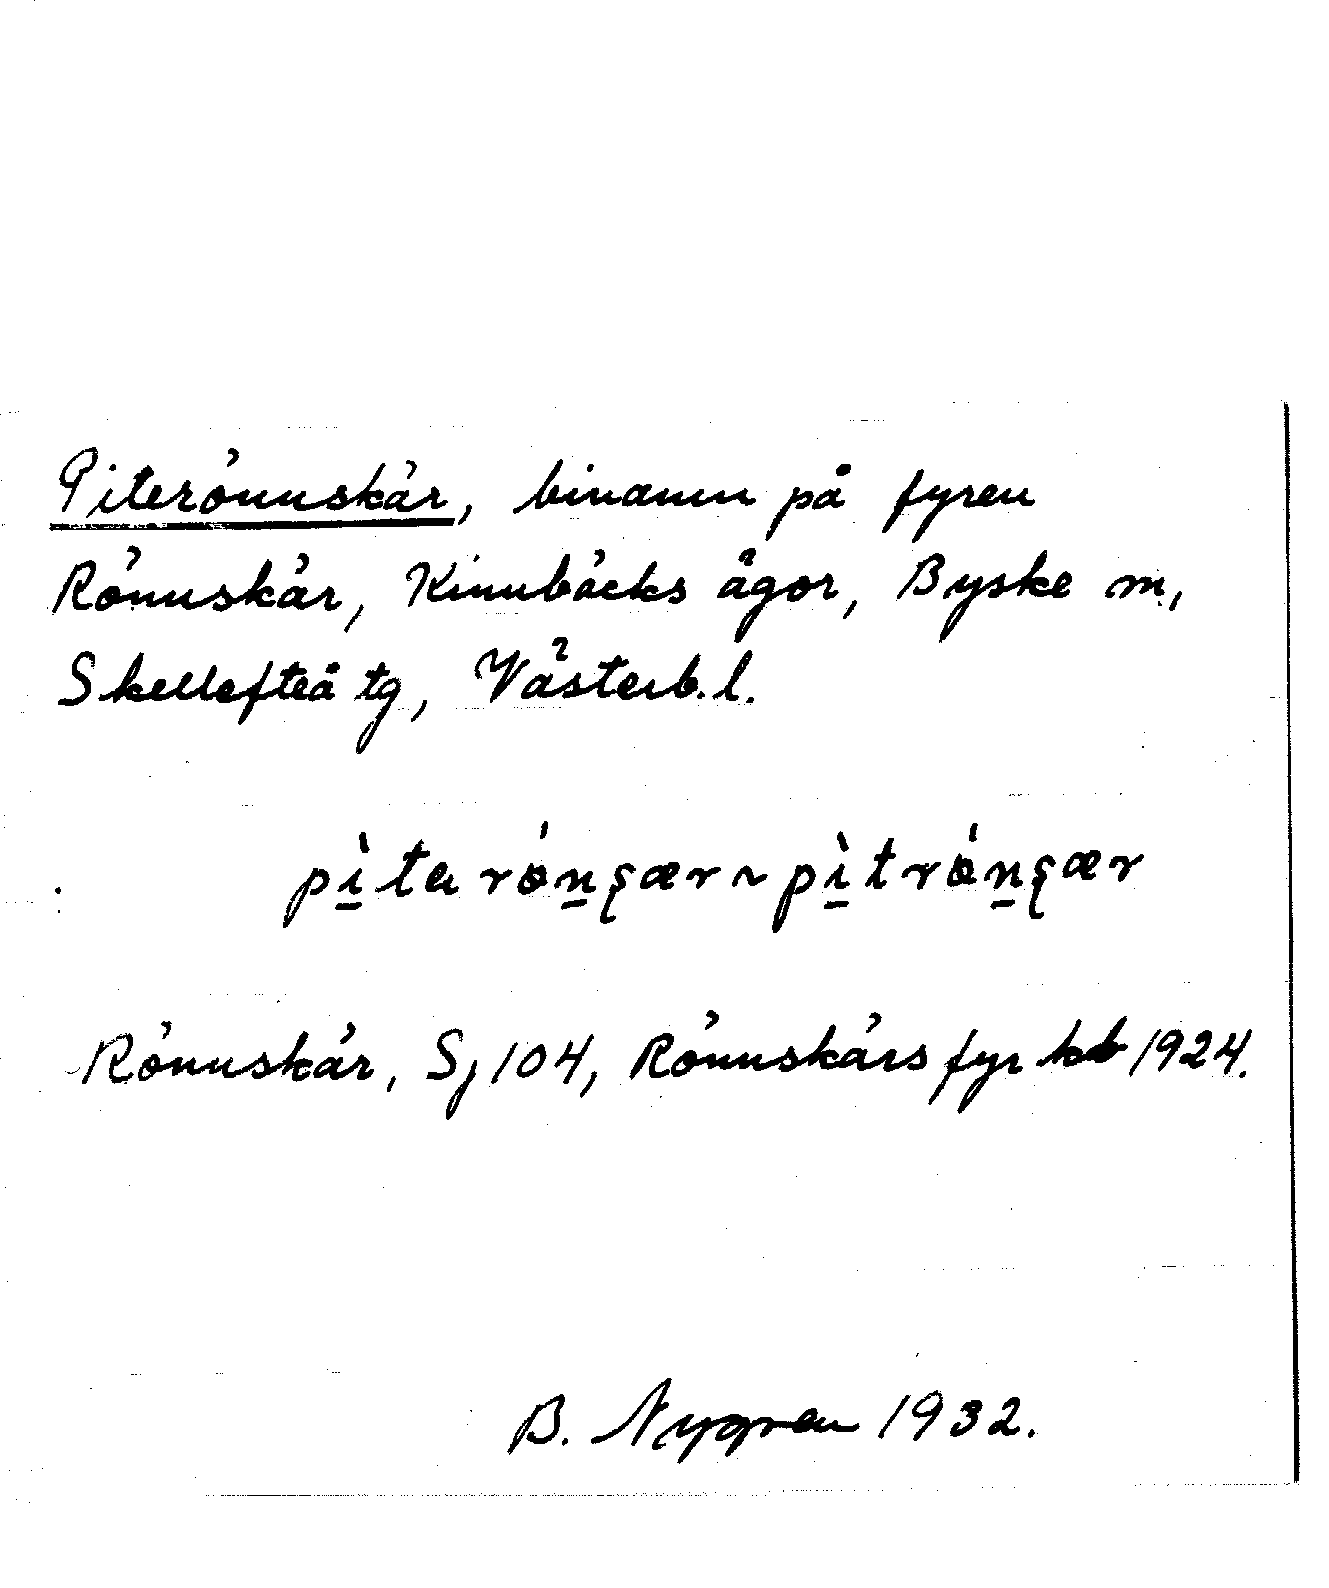 Piterönnskär, binamn på fyren
Rönnskär, Kinnbäcks ägor, Byske sn,
Skellefteå tg, Västerb. l.
pìta rǿn̠ʂær ~ pìtrǿn̠ʂær
Rönnskär, Sj 104, Rönnskärs fyr kb 1924.
B. Nygren 1932.